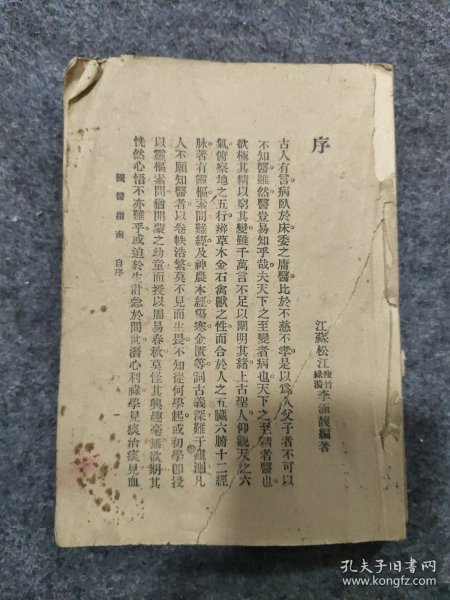 序
江蘇松江李涵馥編著
古人有言。病臥於床委之庸醫比於不慈不孝是以爲人父子者不可以
不知醫雖然醫豈易知乎哉夫天下之至變者病也天下之至精者醫也
欲極其精以窮其變雖千萬言不足以闡明其緒上古聖人仰觀天之六
氣俯察地之五行辨草木金石禽獸之性而合於人之五臟六腑十二經
脉著有靈樞素問難經及神農本經傷寒金匱等詞古義深難于窺測凡
人不願知醫者以卷帙浩繁莫不見而生畏不知從何學起或初學卽授
以靈樞素問猶開蒙之幼童而授以周易春秋莫怪其興趣毫無欲期其
恍然心悟不亦難乎或迫於生計急於問世潛心利祿學見痰治痰見血
國醫指南 自序 一
孔夫子旧书网
www.kongfz.com